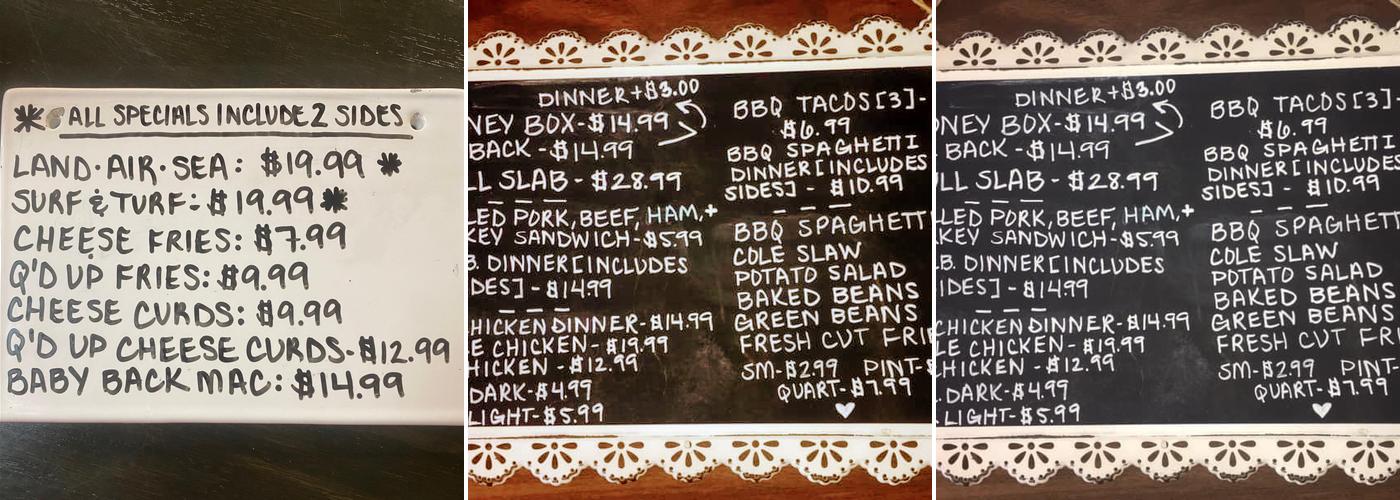 * ALL SPECIALS INCLUDE 2 SIDES
LAND·AIR·SEA: $19.99 *
SURF & TURF: $19.99 *
CHEESE FRIES: $7.99
Q'D UP FRIES: $9.99
CHEESE CURDS: $9.99
Q'D UP CHEESE CURDS-$12.99
BABY BACK MAC: $14.99
DINNER+$3.00
NEY BOX-$14.99
BACK-$14.99
LL SLAB-$28.99
LED PORK, BEEF, HAM,+
KEY SANDWICH-$5.99
B. DINNER [INCLUDES
IDES]-$14.99
HICKEN DINNER-$14.99
E CHICKEN-$19.99
HICKEN-$12.99
DARK-$4.99
LIGHT-$5.99
BBQ TACOS [3]-
$6.99
BBQ SPAGHETTI
DINNER [INCLUDES
SIDES]-$10.99
BBQ SPAGHETTI
COLE SLAW
POTATO SALAD
BAKED BEANS
GREEN BEANS
FRESH CUT FRIE
SM-$2.99 PINT-$
QUART-$7.99
DINNER+$3.00
NEY BOX-$14.99
BACK-$14.99
LL SLAB-$28.99
LED PORK, BEEF, HAM,+
KEY SANDWICH-$5.99
.B. DINNER [INCLUDES
IDES]-$14.99
CHICKEN DINNER-$14.99
LE CHICKEN-$19.99
HICKEN-$12.99
.DARK-$4.99
.LIGHT-$5.99
BBQ TACOS [3]
$6.99
BBQ SPAGHETTI
DINNER [INCLUDES
SIDES]-$10.99
BBQ SPAGHETT
COLE SLAW
POTATO SALAD
BAKED BEANS
GREEN BEANS
FRESH CUT FR
SM-$2.99 PINT-
QUART-$7.99